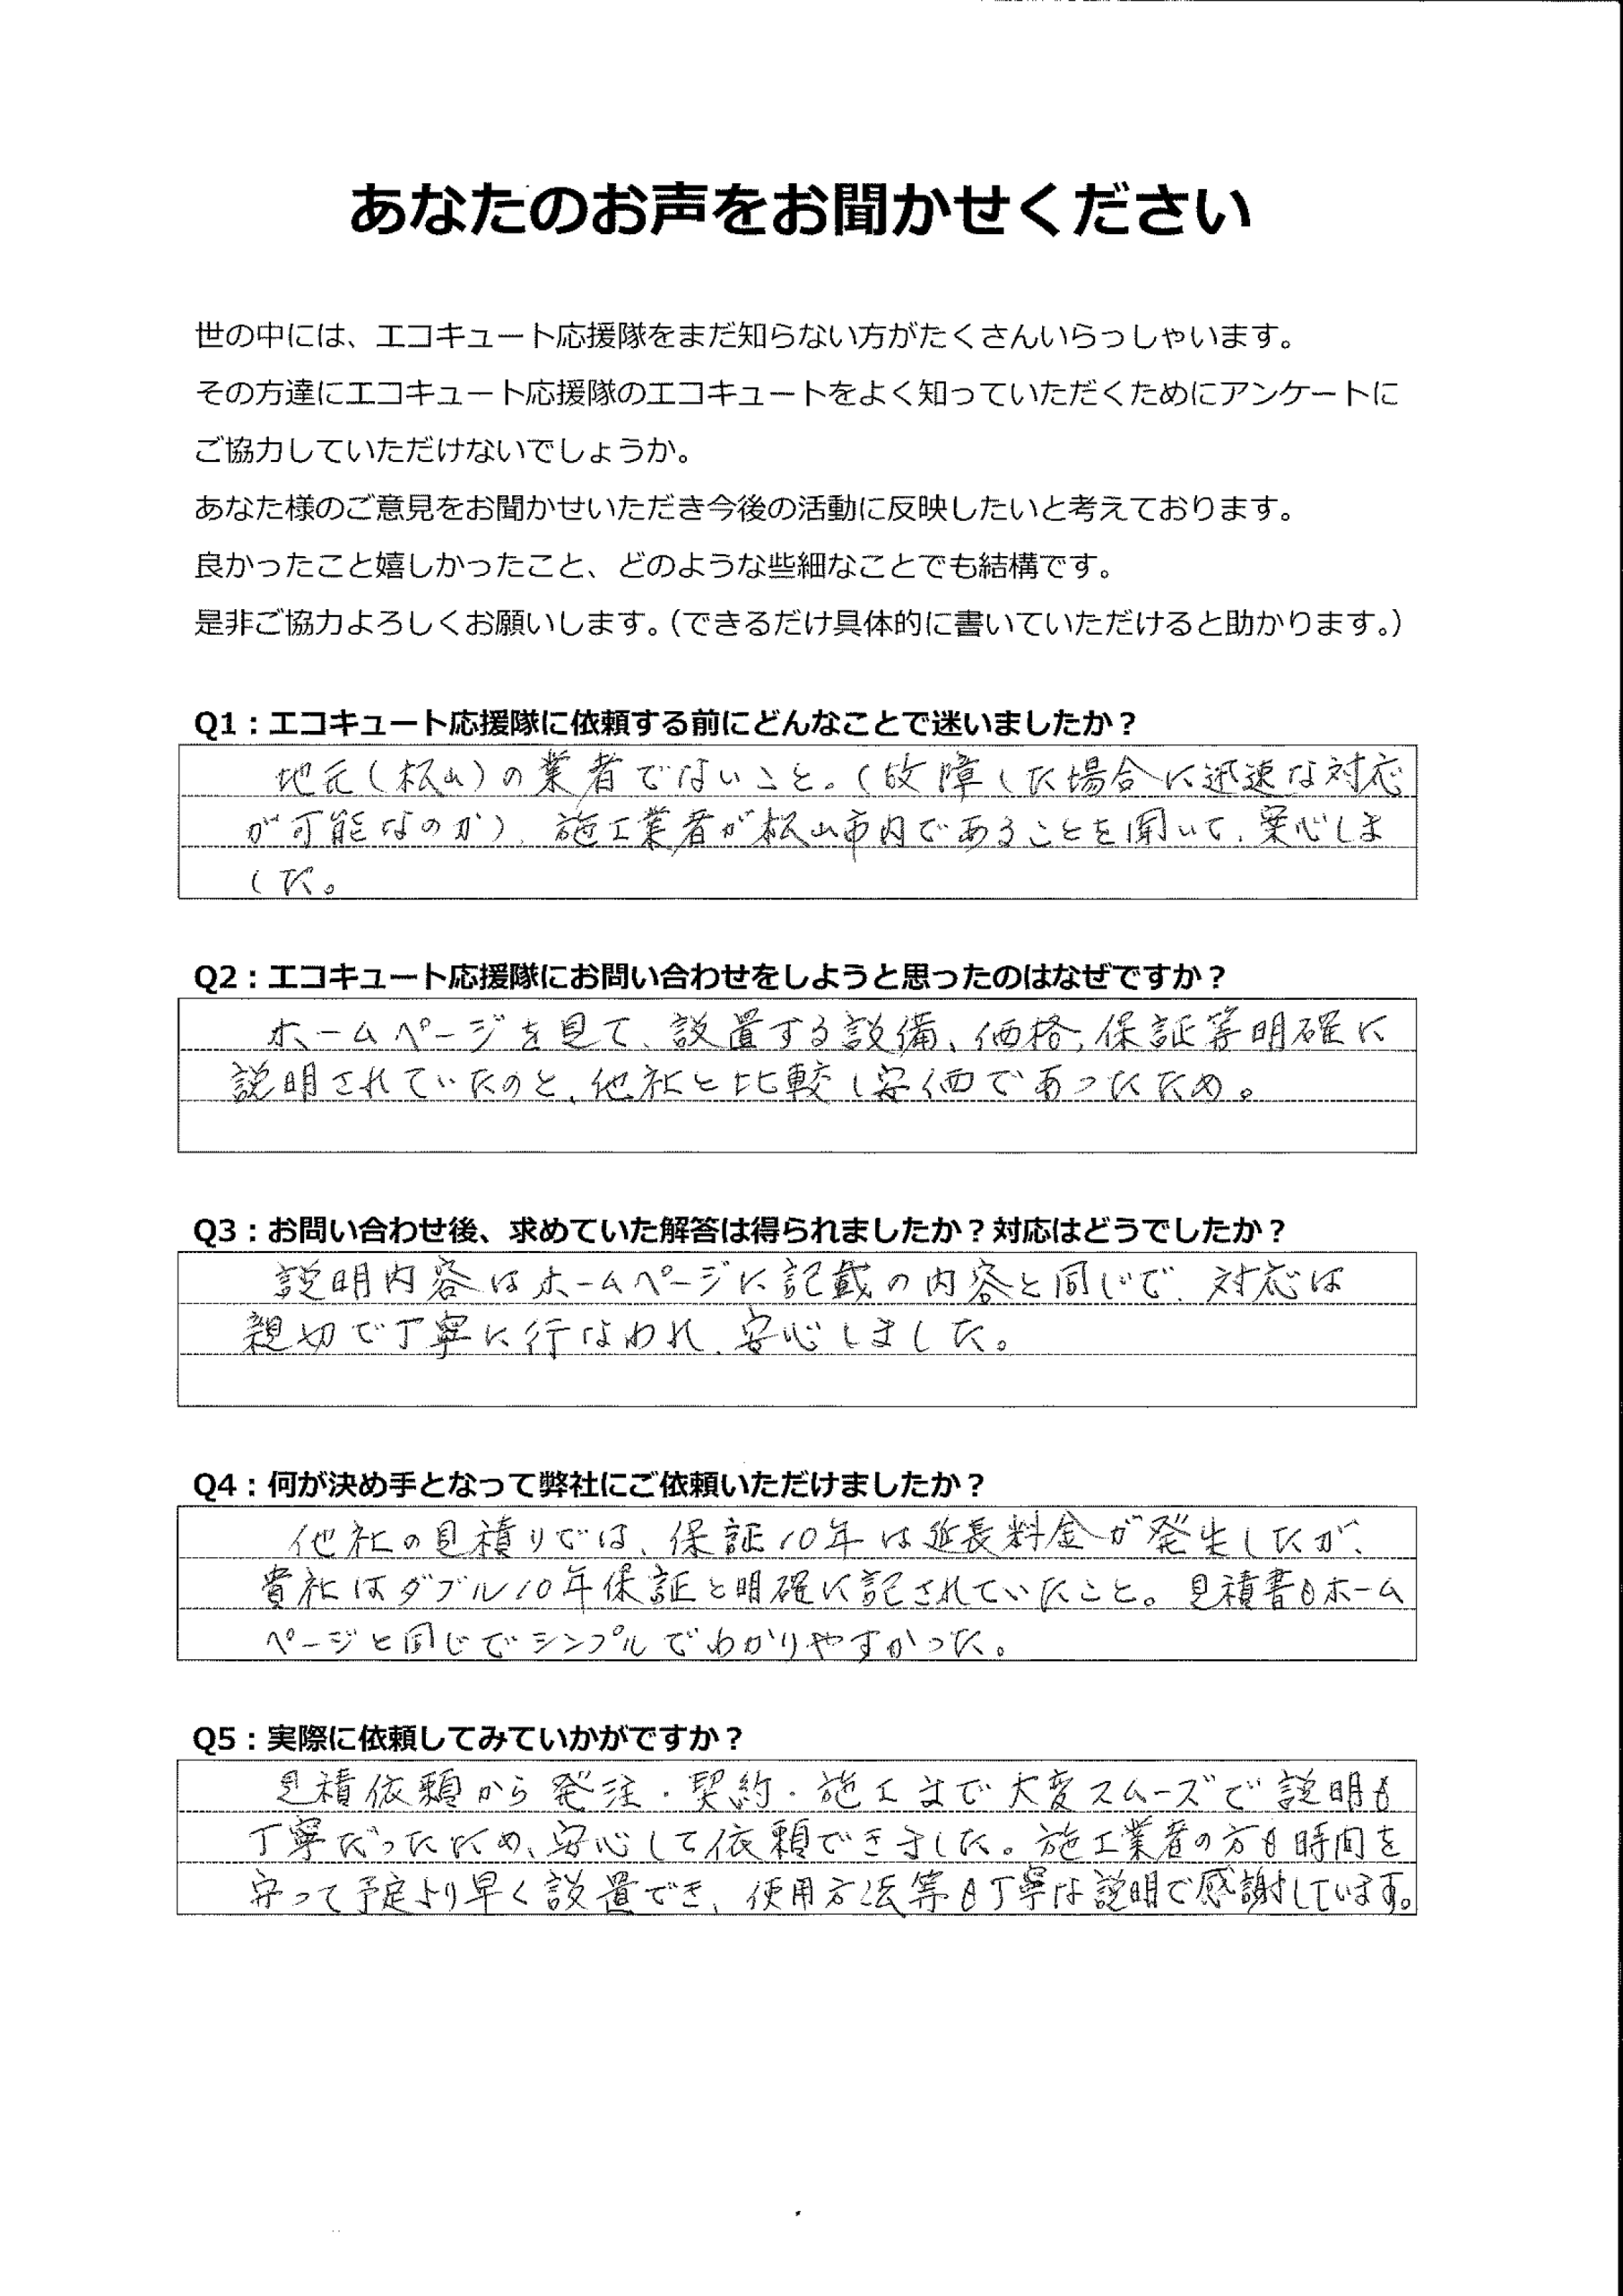 あなたのお声をお聞かせください
世の中には、エコキュート応援隊をまだ知らない方がたくさんいらっしゃいます。
その方達にエコキュート応援隊のエコキュートをよく知っていただくためにアンケートに
ご協力していただけないでしょうか。
あなた様のご意見をお聞かせいただき今後の活動に反映したいと考えております。
良かったこと嬉しかったこと、どのような些細なことでも結構です。
是非ご協力よろしくお願いします。（できるだけ具体的に書いていただけると助かります。）
Q1：エコキュート応援隊に依頼する前にどんなことで迷いましたか？
地元（松山）の業者でないこと。（故障した場合に迅速な対応
が可能なのか）、施工業者が松山市内であることを聞いて、安心しま
した。
Q2：エコキュート応援隊にお問い合わせをしようと思ったのはなぜですか？
ホームページを見て、設置する設備、価格、保証等明確に
説明されていたのと、他社と比較し安価であったため。
Q3：お問い合わせ後、求めていた解答は得られましたか？対応はどうでしたか？
説明内容はホームページに記載の内容と同じで、対応は
親切で丁寧に行なわれ、安心しました。
Q4：何が決め手となって弊社にご依頼いただけましたか？
他社の見積りでは、保証10年は延長料金が発生したが、
貴社はダブル10年保証と明確に記されていたこと。見積書もホーム
ページと同じでシンプルでわかりやすかった。
Q5：実際に依頼してみていかがですか？
見積依頼から発注・契約・施工まで大変スムーズで説明も
丁寧だったため、安心して依頼できました。施工業者の方も時間を
守って予定より早く設置でき、使用方法等も丁寧な説明で感謝しています。